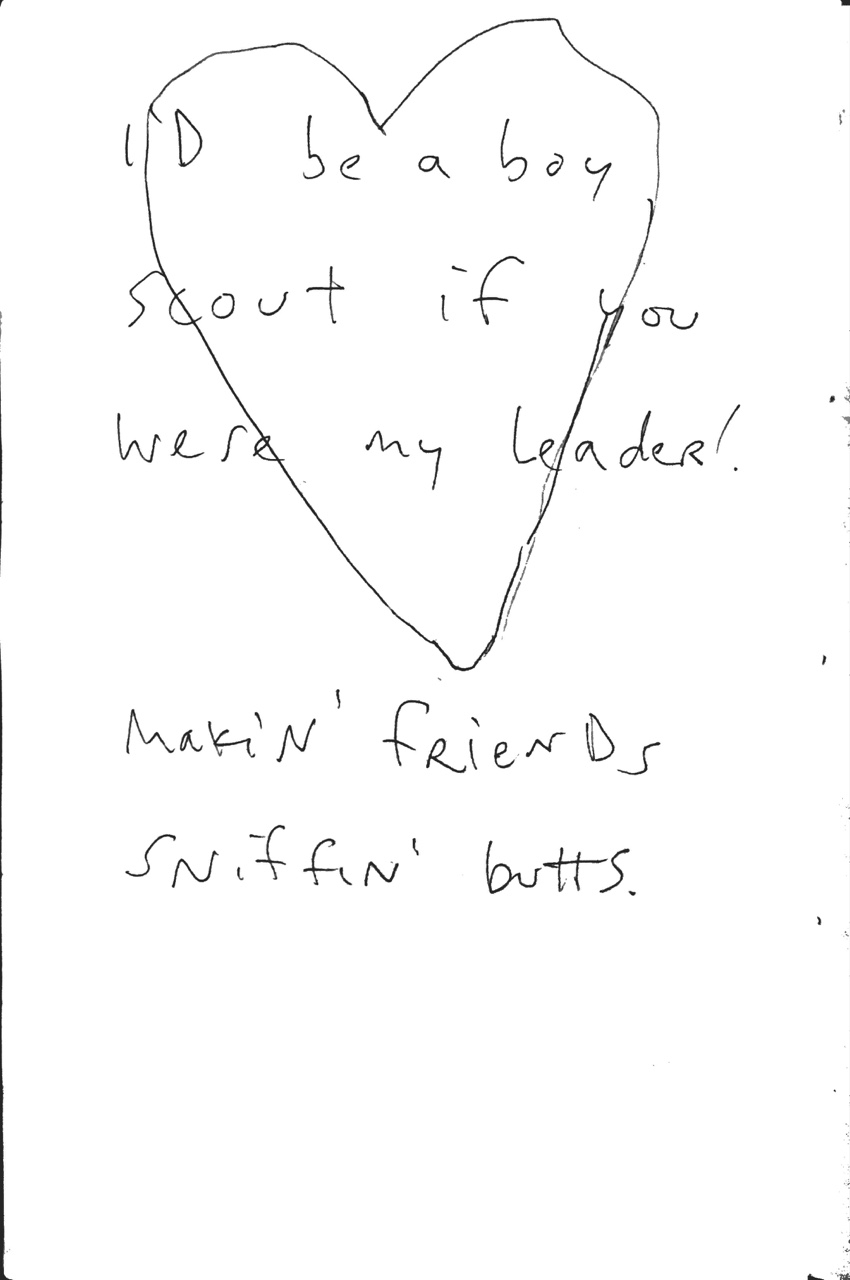 I'D be a boy
scout if you
were my leader!
Makin' friends
sniffin' butts.